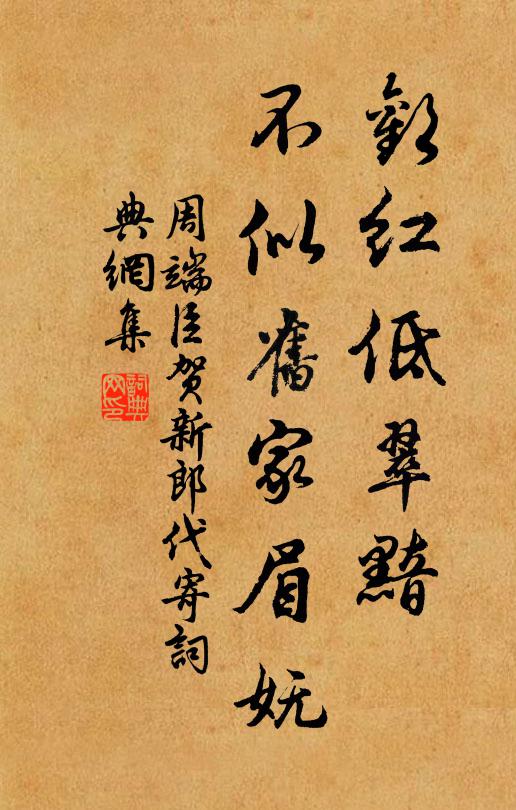 红低翠黯
不似舊家眉妩
周端臣贺新郎代寄詞
典網集
詞典
网印